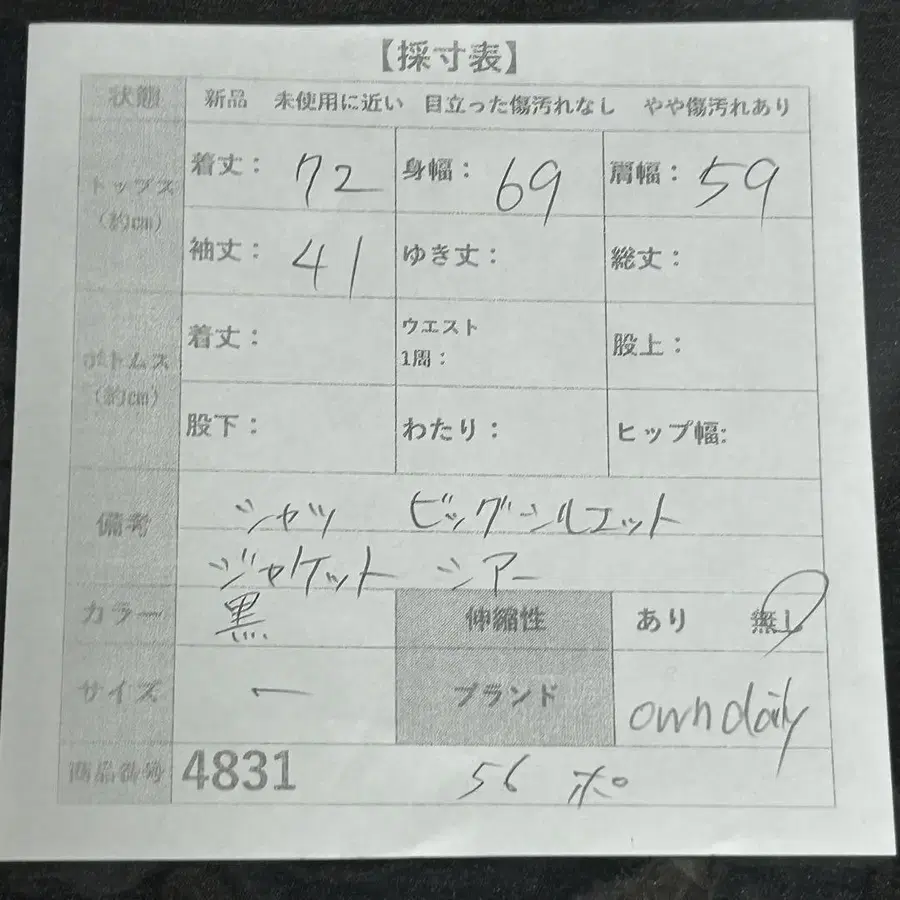 【採寸表】
状態 新品 未使用に近い 目立った傷汚れなし やや傷汚れあり
トップス (約cm) 着丈： 72 身幅： 69 肩幅： 59
袖丈： 41 ゆき丈： 総丈：
ボトムス (約cm) 着丈： ウエスト 1周： 股上：
股下： わたり： ヒップ幅:
備考 シャツ ビッグシルエット
ジャケット シアー
カラー 黒 伸縮性 あり 無し
サイズ ー ブランド own daily
商品番号 4831 56 ポ